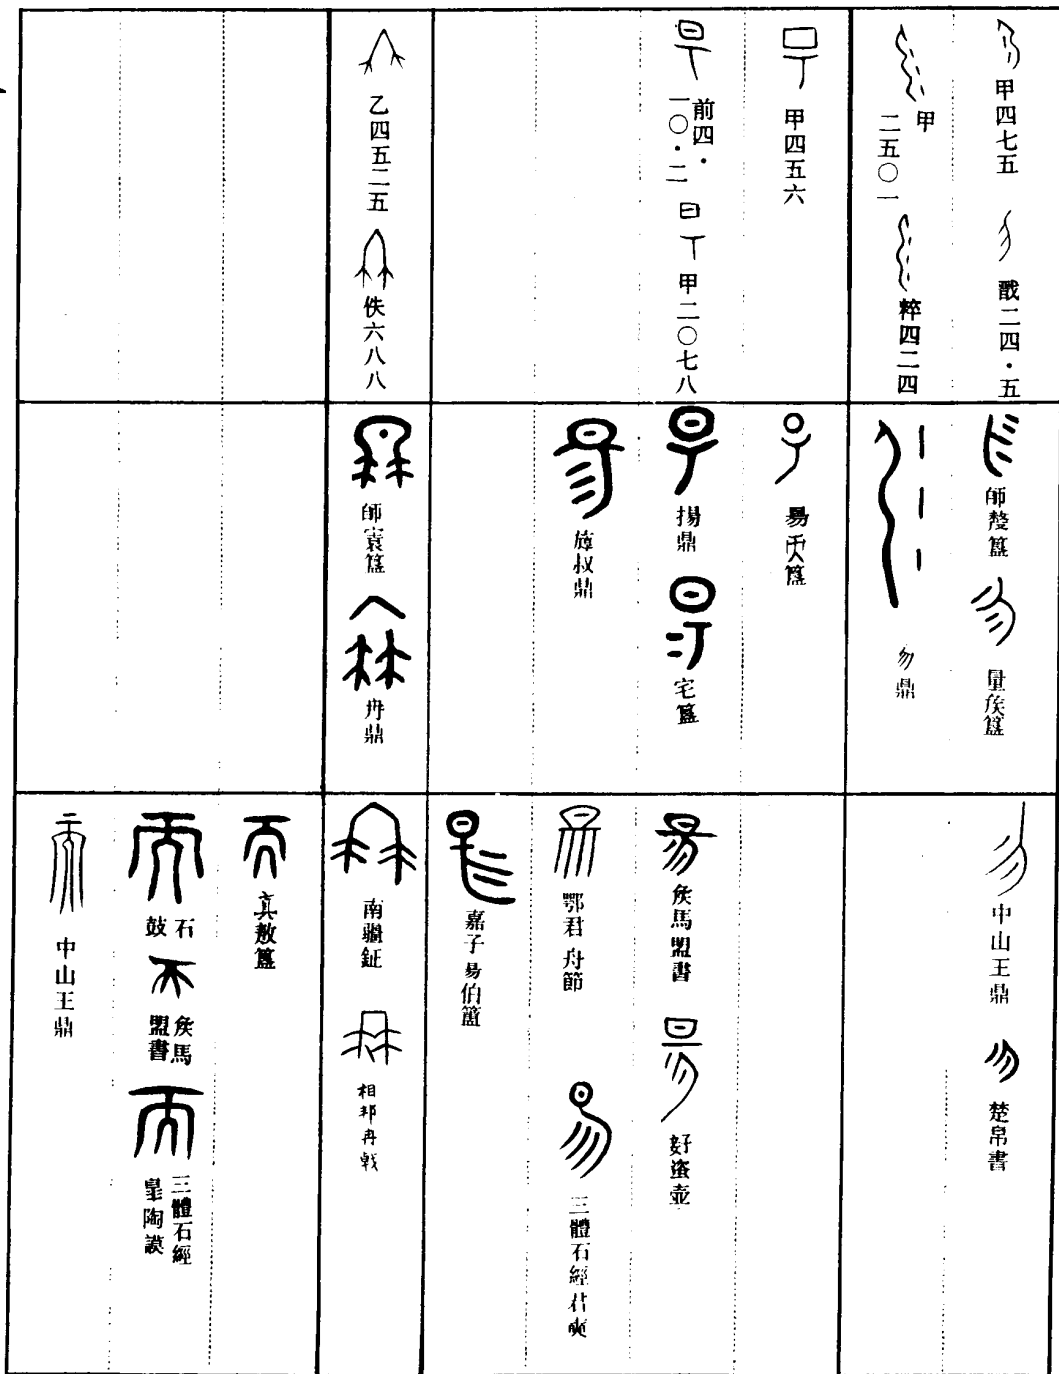 甲四七五
戩二四·五
甲二五〇一
粹四二四
甲四五六
前四·一〇·二
甲二〇七八
乙四五二五
佚六八八
師𠭰簋
量侯簋
勿鼎
易天簋
揚鼎
宅簋
旂叔鼎
師寰簋
冉鼎
中山王鼎
楚帛書
侯馬盟書
𧊒壺
鄂君舟節
三體石經君奭
嘉子易伯簠
南疆鉦
相邦冉戟
真敖簋
石鼓
侯馬盟書
三體石經皋陶謨
中山王鼎